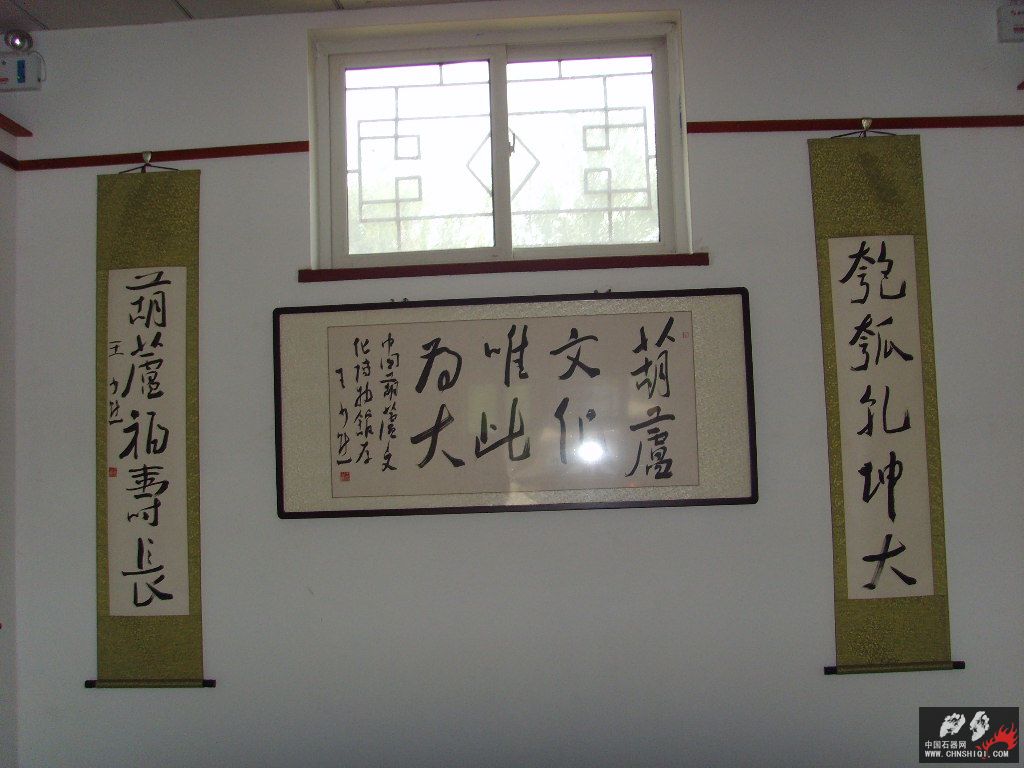 匏瓠乾坤大
葫蘆
文化
唯此
为大
中国葫蘆文
化博物館存
葫蘆福壽長
中国石器网
WWW.CHNSHIQI.COM